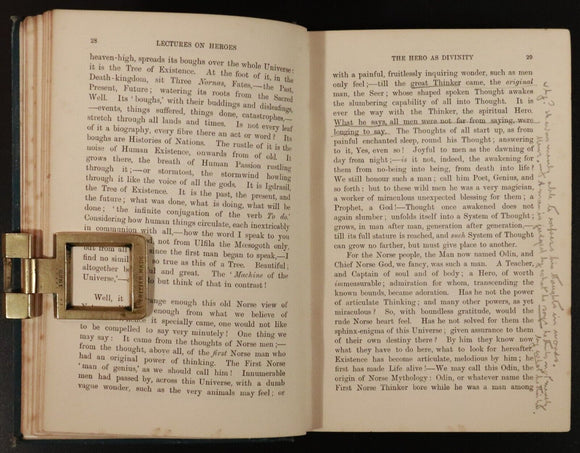 28
LECTURES ON HEROES
heaven-high, spreads its boughs over the whole Universe:
it is the Tree of Existence. At the foot of it, in the
Death-kingdom, sit Three Nornas, Fates,—the Past,
Present, Future; watering its roots from the Sacred
Well. Its 'boughs,' with their buddings and disleafings,
—events, things suffered, things done, catastrophes,—
stretch through all lands and times. Is not every leaf
of it a biography, every fibre there an act or word? Its
boughs are Histories of Nations. The rustle of it is the
noise of Human Existence, onwards from of old. It
grows there, the breath of Human Passion rustling
through it;—or stormtost, the stormwind howling
through it like the voice of all the gods. It is Igdrasil,
the Tree of Existence. It is the past, the present, and
the future; what was done, what is doing, what will be
done; 'the infinite conjugation of the verb To do.'
Considering how human things circulate, each inextricably
in communion with all,—how the word I speak to you
not from Ulfila the Mœsogoth only,
but from all since the first man began to speak,—I
find no simil so true as this of a Tree. Beautiful;
altogether be and great. The 'Machine of the
Universe,'— do but think of that in contrast!
Well, it strange enough this old Norse view of
enough from what we believe of
specially came, one would not like
to be compelled to say very minutely! One thing we
may say: It came from the thoughts of Norse men;—
from the thought, above all, of the first Norse man who
had an original power of thinking. The First Norse
'man of genius,' as we should call him! Innumerable
men had passed by, across this Universe, with a dumb
vague wonder, such as the very animals may feel; or
THE HERO AS DIVINITY
29
with a painful, fruitlessly inquiring wonder, such as men
only feel;—till the great Thinker came, the original
man, the Seer; whose shaped spoken Thought awakes
the slumbering capability of all into Thought. It is
ever the way with the Thinker, the spiritual Hero.
What he says, all men were not far from saying, were
longing to say. The Thoughts of all start up, as from
painful enchanted sleep, round his Thought; answering
to it, Yes, even so! Joyful to men as the dawning of
day from night;—is it not, indeed, the awakening for
them from no-being into being, from death into life?
We still honour such a man; call him Poet, Genius, and
so forth: but to these wild men he was a very magician,
a worker of miraculous unexpected blessing for them; a
Prophet, a God!—Thought once awakened does not
again slumber; unfolds itself into a System of Thought;
grows, in man after man, generation after generation,—
till its full stature is reached, and such System of Thought
can grow no farther, but must give place to another.
For the Norse people, the Man now named Odin, and
Chief Norse God, we fancy, was such a man. A Teacher,
and Captain of soul and of body; a Hero, of worth
immeasurable; admiration for whom, transcending the
known bounds, became adoration. Has he not the power
of articulate Thinking; and many other powers, as yet
miraculous? So, with boundless gratitude, would the
rude Norse heart feel. Has he not solved for them the
sphinx-enigma of this Universe; given assurance to them
of their own destiny there? By him they know now
what they have to do here, what to look for hereafter.
Existence has become articulate, melodious by him; he
first has made Life alive!—We may call this Odin, the
origin of Norse Mythology: Odin, or whatever name the
First Norse Thinker bore while he was a man among